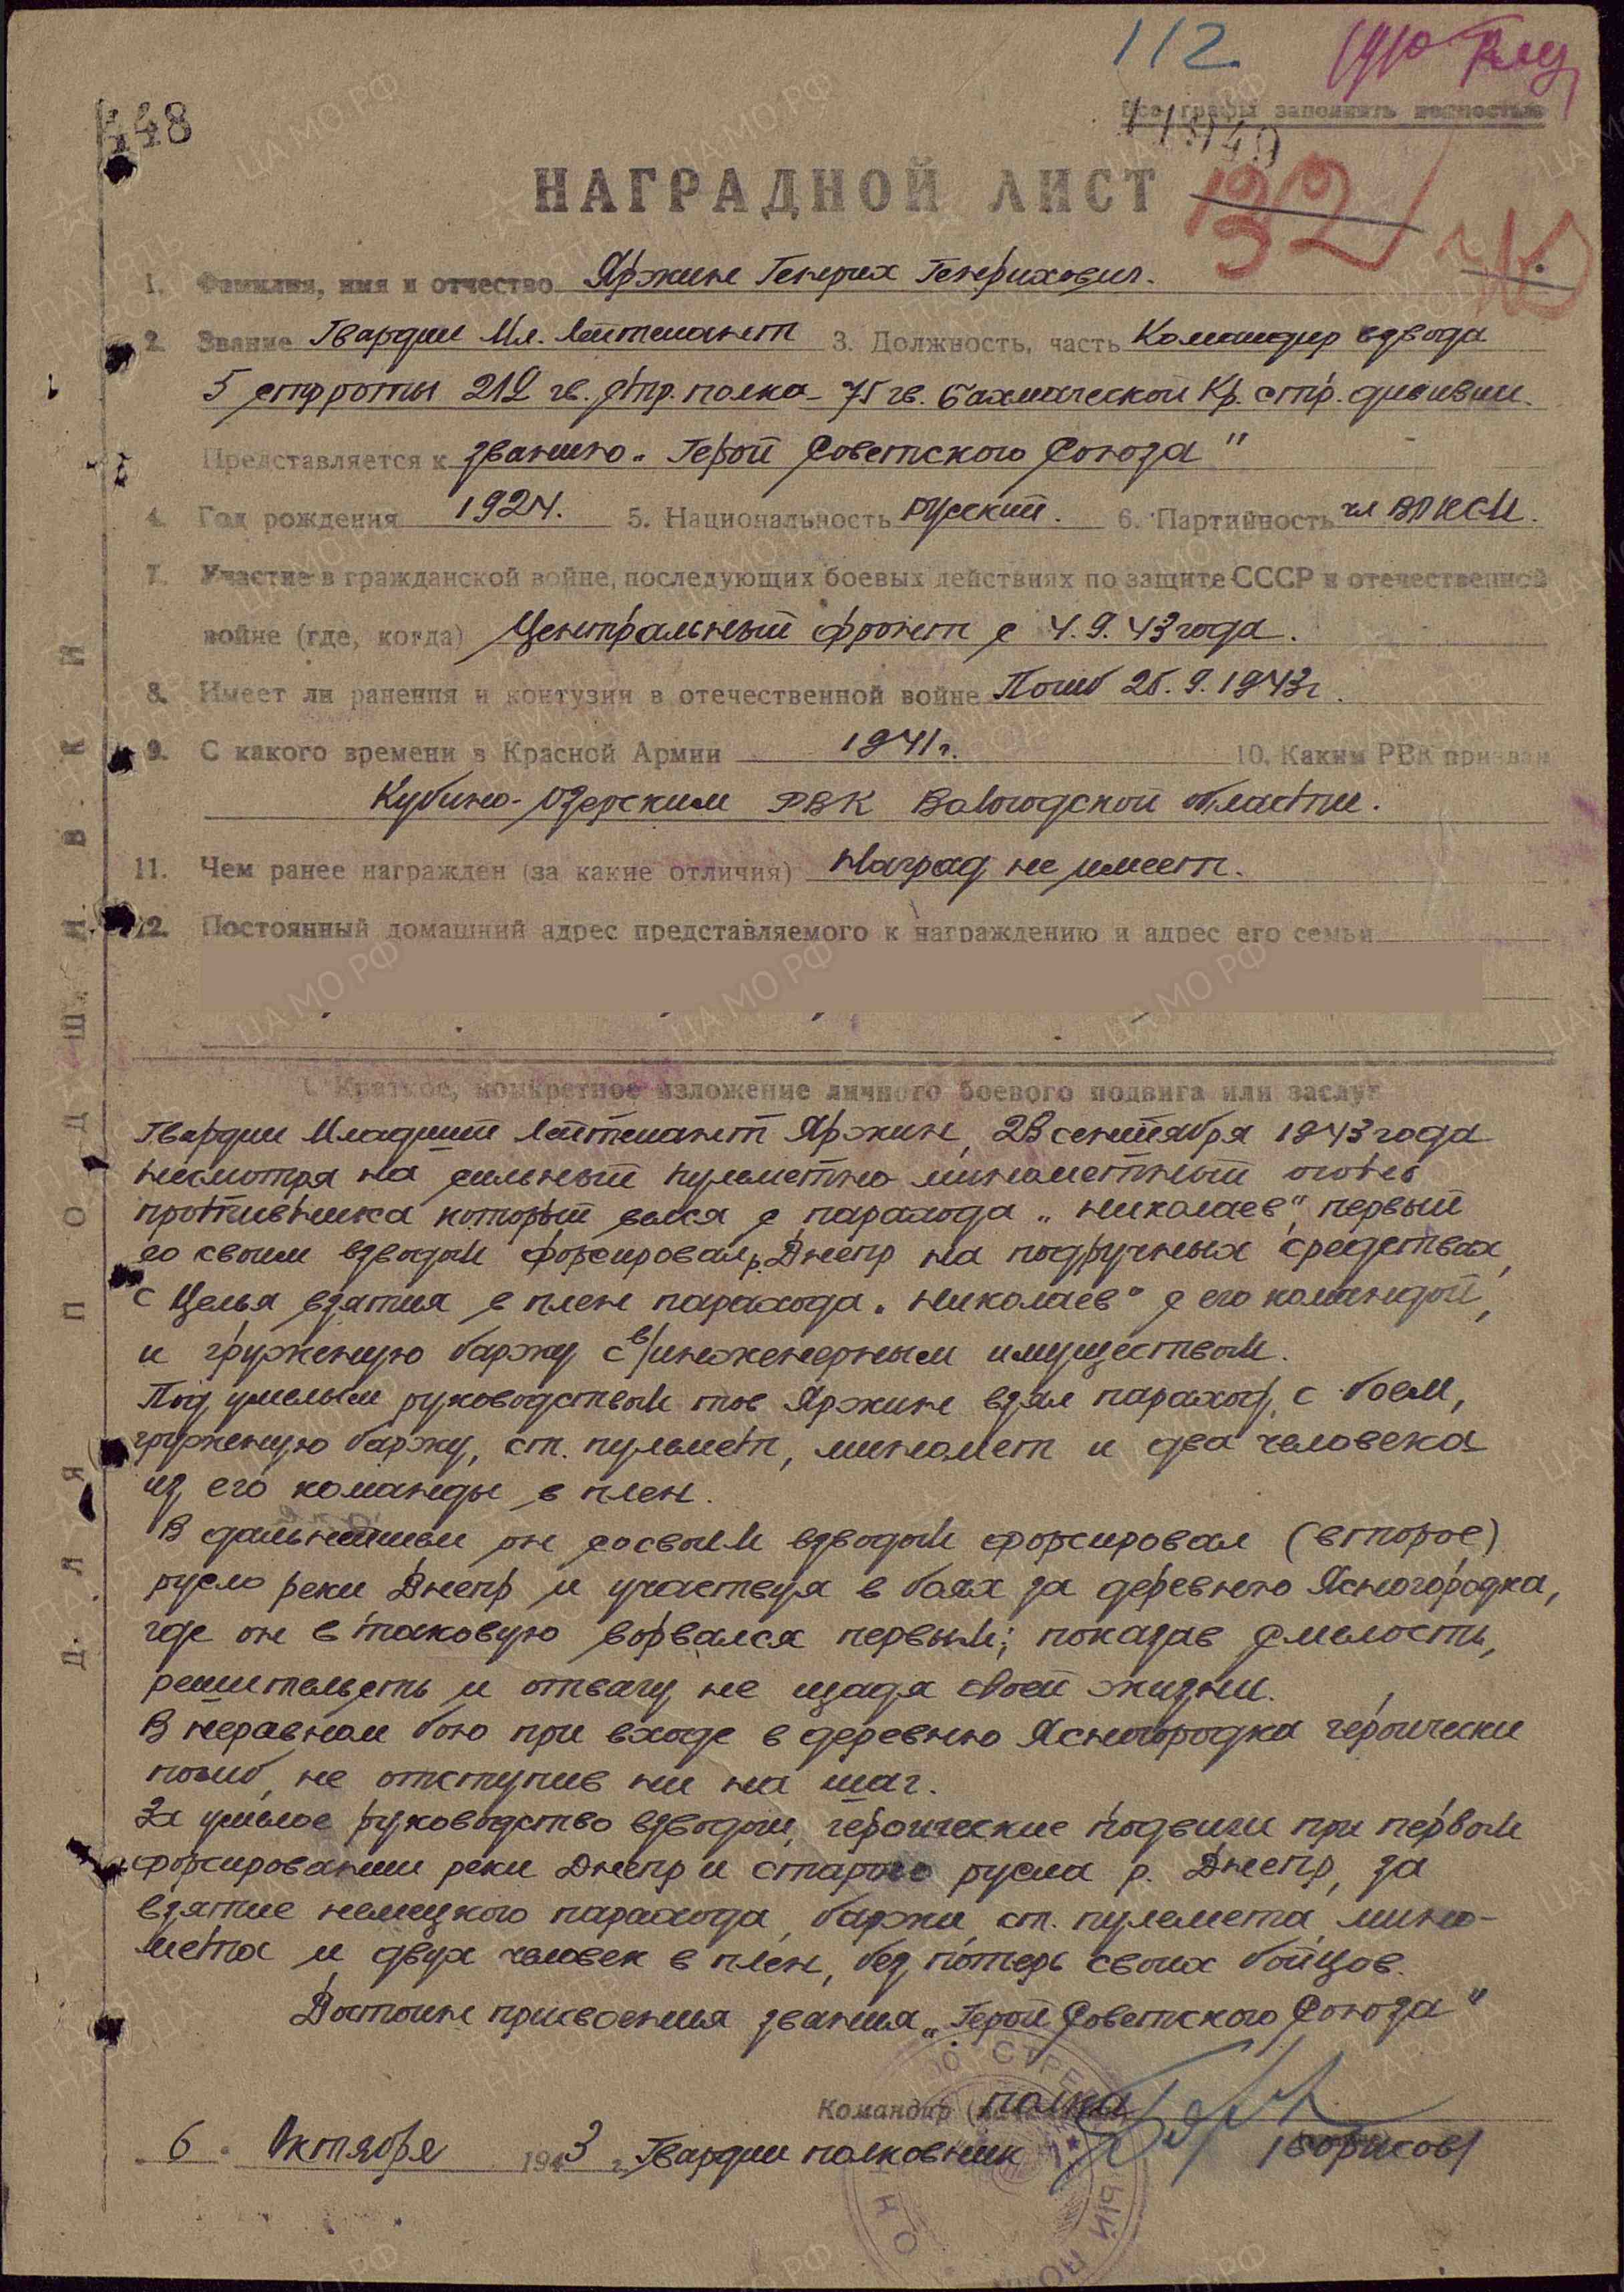 112.
448
Все графы заполнять полностью
НАГРАДНОЙ ЛИСТ
32
1. Фамилия, имя и отчество Яржин Генрих Генрихович.
2. Звание Гвардии Мл. Лейтенант 3. Должность, часть Командир взвода
5 стрроты 212 гв. стр. полка - 75 гв. Бахмачской Кр. стр. дивизии.
Представляется к званию „Герой Советского Союза"
4. Год рождения 1924. 5. Национальность русский. 6. Партийность чл ВЛКСМ.
7. Участие в гражданской войне, последующих боевых действиях по защите СССР и отечественной
войне (где, когда) Центральный фронт с 4.9.43 года.
8. Имеет ли ранения и контузии в отечественной войне Погиб 25.9.1943г.
9. С какого времени в Красной Армии 1941г. 10. Каким РВК призван
Кубино-Озерским РВК Вологодской области.
11. Чем ранее награжден (за какие отличия) Наград не имеет.
12. Постоянный домашний адрес представляемого к награждению и адрес его семьи
Краткое, конкретное изложение личного боевого подвига или заслуг
Гвардии Младший Лейтенант Яржин, 23 сентября 1943 года
несмотря на сильный пулеметно-минометный огонь
противника который велся с парахода „Николаев", первый
со своим взводом форсировал р. Днепр на подручных средствах,
с Целья взятия в плен парахода „Николаев" с его командой,
и груженую баржу с в/инженерным имуществом.
Под умелым руководством тов Яржин взял параход, с боем,
груженую баржу, ст. пульмет, миномет и два человека
из его команды в плен.
В дальнейшем он сосвоим взводом форсировал (второе)
русло реки Днепр и участвуя в боях за деревню Ясногородка,
где он в таковую ворвался первым; показав смелость,
решительсть и отвагу не щадя своей жизни.
В неравном бою при входе в деревню Ясногородка героически
погиб, не отступив ни на шаг.
За умелое руководство взводом, героические подвиги при первом
форсировании реки Днепр и старого русла р. Днепр, за
взятие немецкого парахода, баржи, ст. пулемета, мино-
мета и двух человек в плен, без потерь своих бойцов.
Достоин присвоения звания „Герой Советского Союза"
Командир полка
6 Октября 1943 г. Гвардии полковник /Борисов/
ДЛЯ ПОДШИВКИ